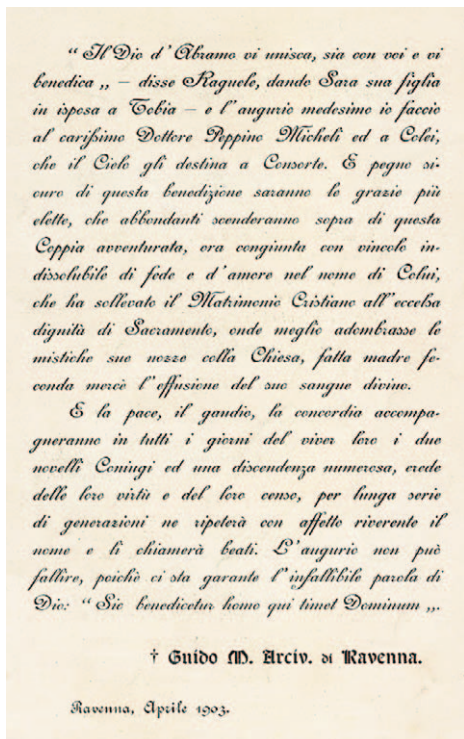 “ Il Dio d'Abramo vi unisca, sia con voi e vi
benedica „ — disse Raguele, dando Sara sua figlia
in isposa a Tobia — e l'augurio medesimo io faccio
al carissimo Dottore Peppino Micheli ed a Colei,
che il Cielo gli destina a Consorte. E pegno si-
curo di questa benedizione saranno le grazie più
elette, che abbondanti scenderanno sopra di questa
Coppia avventurata, ora congiunta con vincolo in-
dissolubile di fede e d'amore nel nome di Colui,
che ha sollevato il Matrimonio Cristiano all'eccelsa
dignità di Sacramento, onde meglio adombrasse le
mistiche sue nozze colla Chiesa, fatta madre fe-
conda mercè l'effusione del suo sangue divino.
E la pace, il gaudio, la concordia accompa-
gneranno in tutti i giorni del viver loro i due
novelli Coniugi ed una discendenza numerosa, erede
delle loro virtù e del loro censo, per lunga serie
di generazioni ne ripeterà con affetto riverente il
nome e li chiamerà beati. L'augurio non può
fallire, poichè ci sta garante l'infallibile parola di
Dio: “ Sic benedicetur homo qui timet Dominum „.
† Guido M. Arciv. di Ravenna.
Ravenna, Aprile 1903.